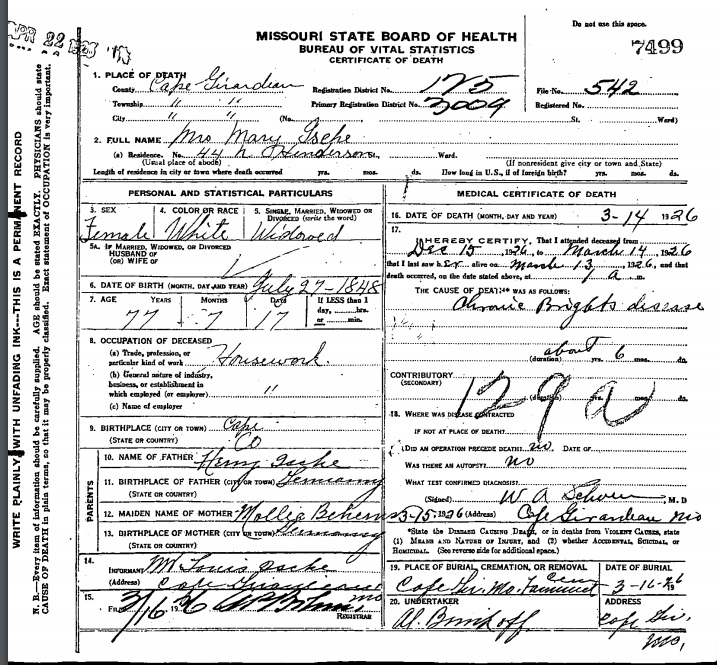 APR 22
Do not use this space.
MISSOURI STATE BOARD OF HEALTH
BUREAU OF VITAL STATISTICS
CERTIFICATE OF DEATH
7499
1. PLACE OF DEATH
County Cape Girardeau Registration District No. 175 File No. 542
Township " " Primary Registration District No. 3009 Registered No.
City " " (No. St. Ward)
2. FULL NAME Mrs Mary
(a) Residence. No. 44 N Henderson St., Ward.
(Usual place of abode) (If nonresident give city or town and State)
Length of residence in city or town where death occurred yrs. mos. ds. How long in U.S., if of foreign birth? yrs. mos. ds.
PERSONAL AND STATISTICAL PARTICULARS
3. SEX 4. COLOR OR RACE 5. SINGLE, MARRIED, WIDOWED OR DIVORCED (write the word)
Female White Widowed
5A. IF MARRIED, WIDOWED, OR DIVORCED
HUSBAND OF
(OR) WIFE OF
6. DATE OF BIRTH (MONTH, DAY AND YEAR) July 27-1848
7. AGE YEARS MONTHS DAYS If LESS than 1 day, ....hrs. or ....min.
77 - 7 17
8. OCCUPATION OF DECEASED
(a) Trade, profession, or particular kind of work Housework.
(b) General nature of industry, business, or establishment in which employed (or employer) "
(c) Name of employer
9. BIRTHPLACE (CITY OR TOWN) Cape
(STATE OR COUNTRY) Co
PARENTS
10. NAME OF FATHER Henry
11. BIRTHPLACE OF FATHER (CITY OR TOWN) Germany
(STATE OR COUNTRY)
12. MAIDEN NAME OF MOTHER Mollie
13. BIRTHPLACE OF MOTHER (CITY OR TOWN) Germany
(STATE OR COUNTRY)
14. INFORMANT Louis
(Address) Cape Girardeau Mo
15. FILED 3/16 1926
REGISTRAR
MEDICAL CERTIFICATE OF DEATH
16. DATE OF DEATH (MONTH, DAY AND YEAR) 3-14 1926
17. I HEREBY CERTIFY, That I attended deceased from
Dec 15, 1926, to March 14, 1926
that I last saw her alive on March 13, 1926, and that
death occurred, on the date stated above, at 9 a m.
THE CAUSE OF DEATH* WAS AS FOLLOWS:
Chronic Brights disease
(duration) about yrs. 6 mos. ds.
CONTRIBUTORY
(SECONDARY)
129a
(duration) yrs. mos. ds.
18. WHERE WAS DISEASE CONTRACTED
IF NOT AT PLACE OF DEATH?
DID AN OPERATION PRECEDE DEATH? no. DATE OF
WAS THERE AN AUTOPSY? no
WHAT TEST CONFIRMED DIAGNOSIS?
(Signed) W A , M. D
3-15, 1926 (Address) Cape Girardeau Mo
*State the DISEASE CAUSING DEATH, or in deaths from VIOLENT CAUSES, state
(1) MEANS AND NATURE OF INJURY, and (2) whether ACCIDENTAL, SUICIDAL, or
HOMICIDAL. (See reverse side for additional space.)
19. PLACE OF BURIAL, CREMATION, OR REMOVAL DATE OF BURIAL
Cape Gir. Mo. Cem 3-16-26
20. UNDERTAKER ADDRESS
Al. Brinkopf Cape Gir. Mo.
WRITE PLAINLY, WITH UNFADING INK---THIS IS A PERMANENT RECORD
N. B.—Every item of information should be carefully supplied. AGE should be stated EXACTLY. PHYSICIANS should state
CAUSE OF DEATH in plain terms, so that it may be properly classified. Exact statement of OCCUPATION is very important.